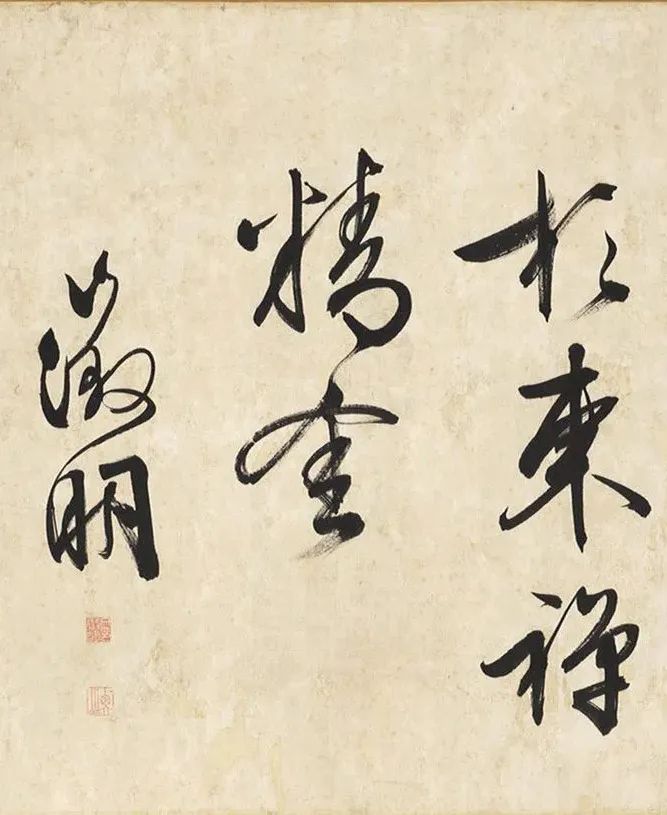 於東禪
精舍
徵明